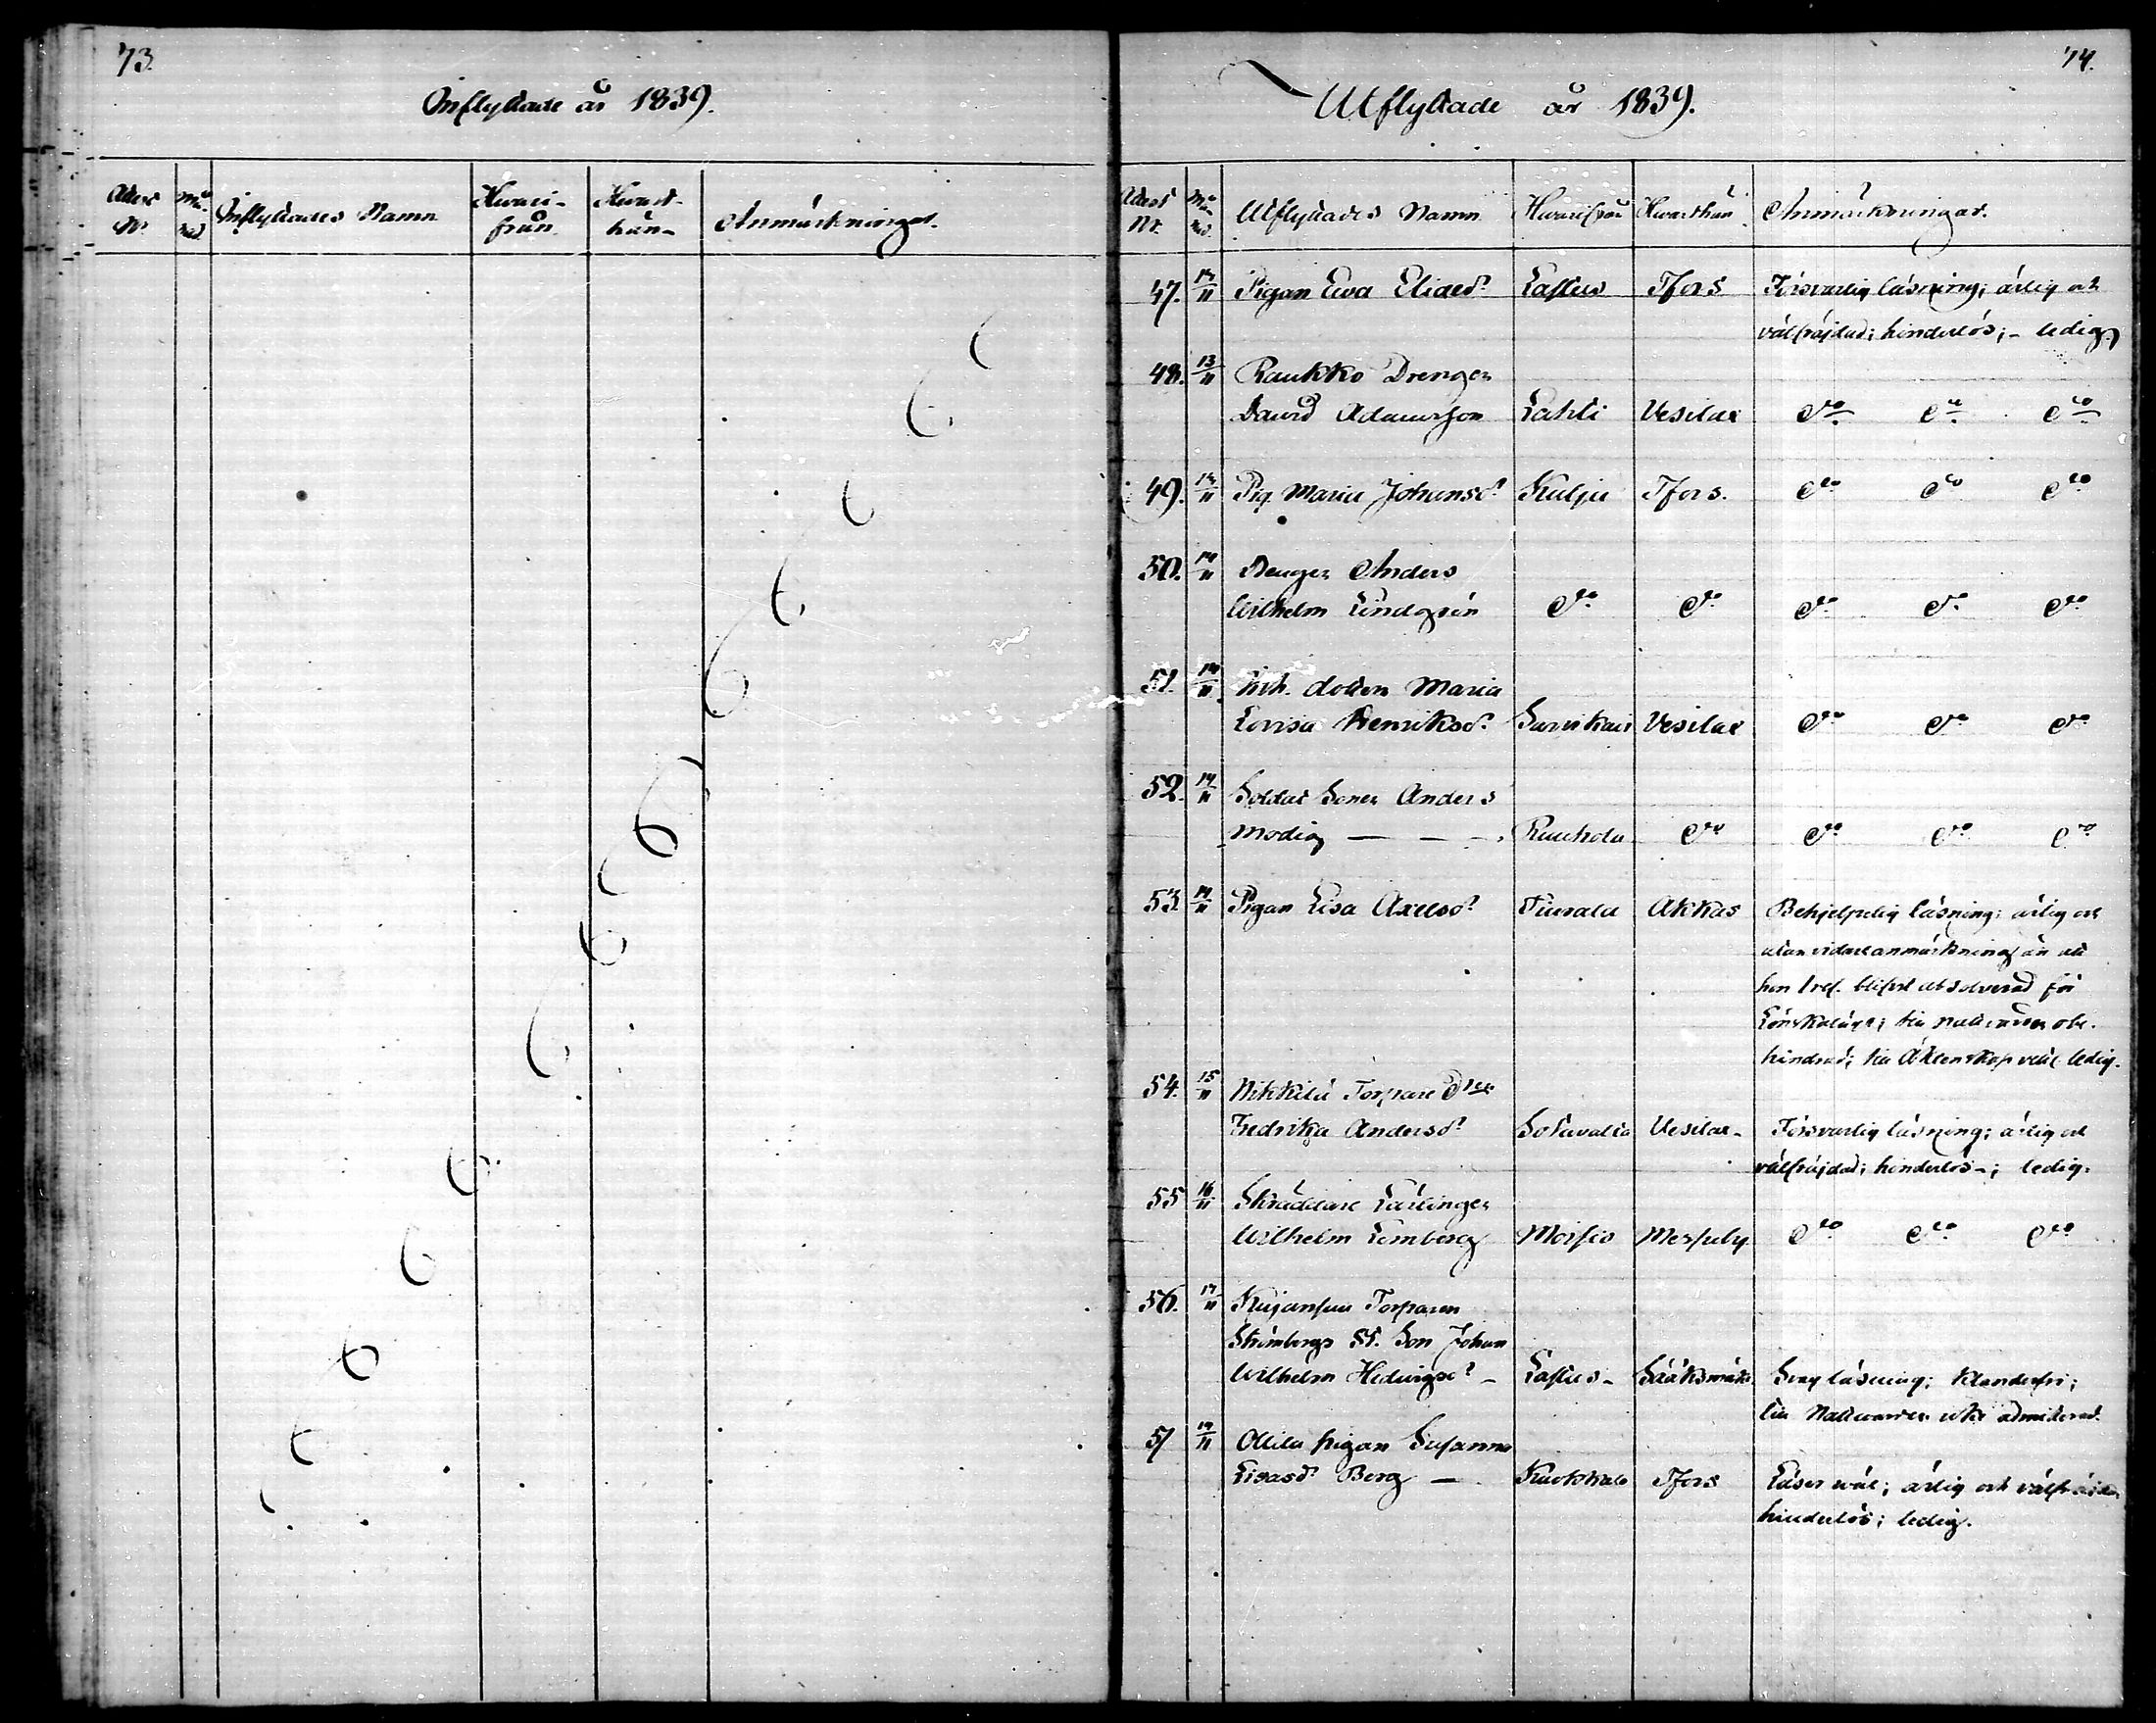 73.
Inflyttade år 1839.
Attest Nr. Må-nad Inflyttades Namn Hvari-från Hvart-hän Anmärkningar.
74.
Utflyttade år 1839.
Attest Nr. Må-nad Utflyttades Namn Hvarifrån Hvarthän Anmärkningar.
47. 12/11 Pigan Eva Eliaed:r Laslus Tfors Försvarlig läsning; ärlig och
välfräjdad; hinderlös; - ledig.
48. 13/11 Raukko Drengen
David Adamsson Lahti Vesilax d:o d:o d:o
49. 14/11 Pig. Maria Johansd:r Kulju Tfors. d:o d:o d:o
50. 14/11 Drengen Anders
Wilhelm Lindgrén d:o d:o d:o d:o d:o
51. 14/11 Inh. dottren Maria
Lovisa Henriksd:r Sarvikais Vesilax d:o d:o d:o
52. 14/11 Soldat Sonen Anders
Modig — — — Ruuhola d:o d:o d:o d:o
53. 14/11 Pigan Lisa Axelsd:r Akkas Behjelpelig läsning; ärlig och
utan vidare anmärkning än att
hon blifvit absolverad för
Lönskaläge; till Nattvarden obe-
hindrad; till Äktenskap ledig.
54. 15/11 Nikkilä Torpare d:tter
Fredrika Andersd:r Sotavalta Vesilax- Försvarlig läsning; ärlig och
välfräjdad; hinderlös-; ledig.
55 16/11 Skräddare Lärlingen
Wilhelm Lemberg Moisio Messuby d:o d:o d:o
56. 17/11 Kujanpää Torparen
Strömbergs St. Son Johan
Wilhelm Hedvigs - Laslus- Sääksmäki Svag läsning; klanderfri;
till Nattvarden icke admitterad.
57 19/11 Ollila pigan Susanna
Lisasd:r Berg — Kuokkala Tfors Läser wäl; ärlig och välfräjdad
hinderlös; ledig.